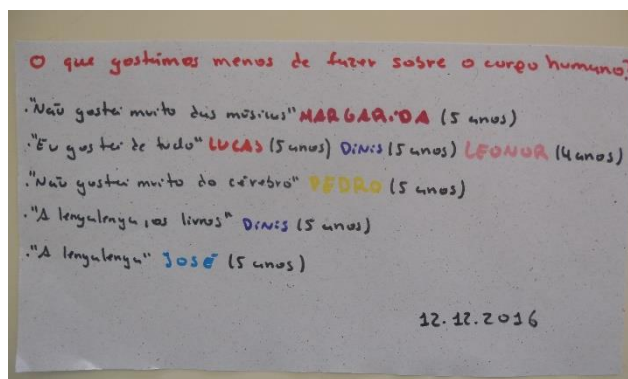 O que gostámos menos de fazer sobre o corpo humano?
."Não gostei muito das músicas" MARGARIDA (5 anos)
."Eu gostei de tudo" LUCAS (5 anos) DiNiS (5 anos) LEONOR (4 anos)
."Não gostei muito do cérebro" PEDRO (5 anos)
."A lengalenga, os livros" DiNiS (5 anos)
."A lengalenga" JOSÉ (5 anos)
12.12.2016